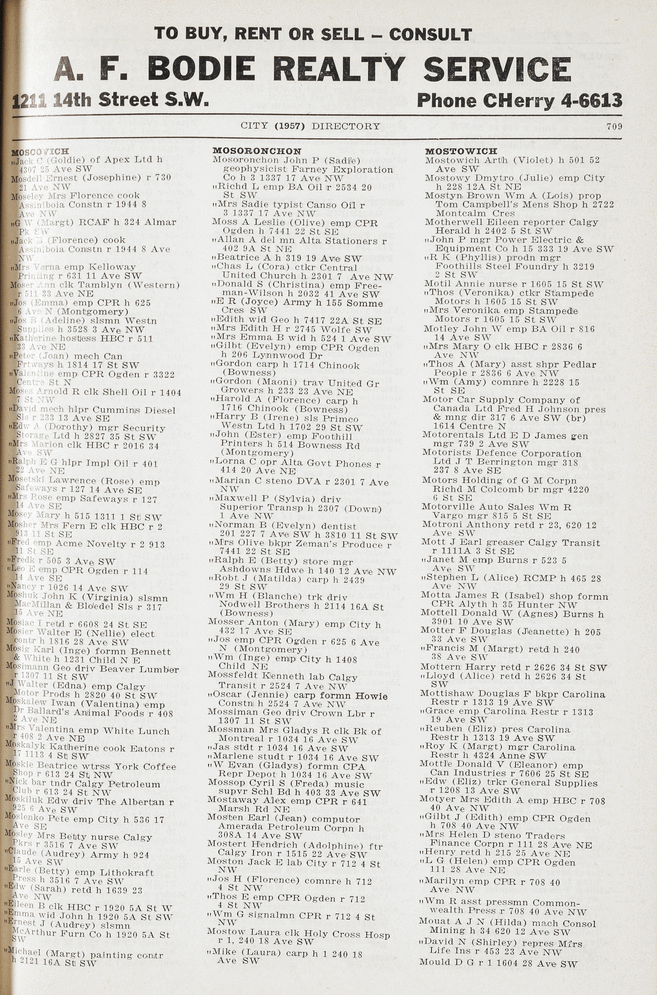 TO BUY, RENT OR SELL – CONSULT
A. F. BODIE REALTY SERVICE
1211 14th Street S.W. Phone CHerry 4-6613
CITY (1957) DIRECTORY 709
MOSCOVICH
„Jack C (Goldie) of Apex Ltd h
4307 25 Ave SW
Mosdell Ernest (Josephine) r 730
21 Ave NW
Moseley Mrs Florence cook
Assiniboia Constn r 1944 8
Ave NW
„G W (Margt) RCAF h 324 Almar
Pk SW
„Jack B (Florence) cook
Assiniboia Constn r 1944 8 Ave
NW
„Mrs Verna emp Kelloway
Printing r 631 11 Ave SW
Moser Ann clk Tamblyn (Western)
r 511 33 Ave NE
„Jos (Emma) emp CPR h 625
6 Ave N (Montgomery)
„Jos B (Adeline) slsmn Westn
Supplies h 3528 3 Ave NW
„Katherine hostess HBC r 511
33 Ave NE
„Peter (Joan) mech Can
Frtways h 1814 17 St SW
„Valentine emp CPR Ogden r 3322
Centre St N
Moses Arnold R clk Shell Oil r 1404
7 St NW
„David mech hlpr Cummins Diesel
Sls r 233 13 Ave SE
„Edw A (Dorothy) mgr Security
Storage Ltd h 2827 35 St SW
„Mrs Marion clk HBC r 2016 34
Ave SW
„Ralph E G hlpr Impl Oil r 401
22 Ave NE
Mosetski Lawrence (Rose) emp
Safeways r 127 14 Ave SE
„Mrs Rose emp Safeways r 127
14 Ave SE
Mosey Mary h 515 1311 1 St SW
Mosher Mrs Fern E clk HBC r 2
913 11 St SE
„Fred emp Acme Novelty r 2 913
11 St SE
„Fredk r 505 3 Ave SW
„Leo E emp CPR Ogden r 114
14 Ave SE
„Nancy r 1026 14 Ave SW
Moshuk John K (Virginia) slsmn
MacMillan & Bloedel Sls r 317
15 Ave NE
Mosiac I retd r 6608 24 St SE
Mosier Walter E (Nellie) elect
contr h 1816 28 Ave SW
Mosig Karl (Inge) formn Bennett
& White h 1231 Child N E
Mosimann Geo driv Beaver Lumber
r 1307 11 St SW
„J Walter (Edna) emp Calgy
Motor Prods h 2820 40 St SW
Moskalew Iwan (Valentina) emp
Dr Ballard's Animal Foods r 408
2 Ave NE
„Mrs Valentina emp White Lunch
r 408 2 Ave NE
Moskalyk Katherine cook Eatons r
17 1113 4 St SW
Moskie Beatrice wtrss York Coffee
Shop r 613 24 St NW
„Nick bar tndr Calgy Petroleum
Club r 613 24 St NW
Moskiluk Edw driv The Albertan r
925 6 Ave SW
Moslenko Pete emp City h 536 17
Ave SE
Mosley Mrs Betty nurse Calgy
Pkrs r 3516 7 Ave SW
„Claude (Audrey) Army h 924
15 Ave SW
„Earle (Betty) emp Lithokraft
Press h 3516 7 Ave SW
„Edw (Sarah) retd h 1639 23
Ave NW
„Eileen B clk HBC r 1920 5A St W
„Emma wid John h 1920 5A St SW
„Ernest J (Audrey) slsmn
McArthur Furn Co h 1920 5A St
SW
„Michael (Margt) painting contr
h 2121 16A St SW
MOSORONCHON
Mosoronchon John P (Sadie)
geophysicist Farney Exploration
Co h 3 1337 17 Ave NW
„Richd L emp BA Oil r 2534 20
St SW
„Mrs Sadie typist Canso Oil r
3 1337 17 Ave NW
Moss A Leslie (Olive) emp CPR
Ogden h 7441 22 St SE
„Allan A del mn Alta Stationers r
402 9A St NE
„Beatrice A h 319 19 Ave SW
„Chas L (Cora) ctkr Central
United Church h 2301 7 Ave NW
„Donald S (Christina) emp Free-
man-Wilson h 2032 41 Ave SW
„E R (Joyce) Army h 155 Somme
Cres SW
„Edith wid Geo h 7417 22A St SE
„Mrs Edith H r 2745 Wolfe SW
„Mrs Emma B wid h 524 1 Ave SW
„Gilbt (Evelyn) emp CPR Ogden
h 206 Lynnwood Dr
„Gordon carp h 1714 Chinook
(Bowness)
„Gordon (Maoni) trav United Gr
Growers h 233 23 Ave NE
„Harold A (Florence) carp h
1716 Chinook (Bowness)
„Harry B (Irene) sls Primco
Westn Ltd h 1702 29 St SW
„John (Ester) emp Foothill
Printers h 514 Bowness Rd
(Montgomery)
„Lorna C opr Alta Govt Phones r
414 20 Ave NE
„Marian C steno DVA r 2301 7 Ave
NW
„Maxwell P (Sylvia) driv
Superior Transp h 2307 (Down)
1 Ave NW
„Norman B (Evelyn) dentist
201 227 7 Ave SW h 3810 11 St SW
„Mrs Olive bkpr Zeman's Produce r
7441 22 St SE
„Ralph E (Betty) store mgr
Ashdowns Hdwe h 140 12 Ave NW
„Robt J (Matilda) carp h 2439
29 St SW
„Wm H (Blanche) trk driv
Nodwell Brothers h 2114 16A St
(Bowness)
Mosser Anton (Mary) emp City h
432 17 Ave SE
„Jos emp CPR Ogden r 625 6 Ave
N (Montgomery)
„Wm (Inge) emp City h 1408
Child NE
Mossfeldt Kenneth lab Calgy
Transit r 2524 7 Ave NW
„Oscar (Jennie) carp formn Howie
Constn h 2524 7 Ave NW
Mossiman Geo driv Crown Lbr r
1307 11 St SW
Mossman Mrs Gladys R clk Bk of
Montreal r 1034 16 Ave SW
„Jas stdt r 1034 16 Ave SW
„Marlene studt r 1034 16 Ave SW
„W Evan (Gladys) formn CPA
Repr Depot h 1034 16 Ave SW
Mossop Cyril S (Freda) music
supvr Schl Bd h 403 33 Ave SW
Mostaway Alex emp CPR r 641
Marsh Rd NE
Mosten Earl (Jean) computor
Amerada Petroleum Corpn h
308A 14 Ave SW
Mostert Hendrich (Adolphine) ftr
Calgy Iron r 1515 22 Ave SW
Moston Jack E lab City r 712 4 St
NW
„Jos H (Florence) comnre h 712
4 St NW
„Thos E emp CPR Ogden r 712
4 St NW
„Wm G signalmn CPR r 712 4 St
NW
Mostow Laura clk Holy Cross Hosp
r 1, 240 18 Ave SW
„Mike (Laura) carp h 1 240 18
Ave SW
MOSTOWICH
Mostowich Arth (Violet) h 501 52
Ave SW
Mostowy Dmytro (Julie) emp City
h 228 12A St NE
Mostyn Brown Wm A (Lois) prop
Tom Campbell's Mens Shop h 2722
Montcalm Cres
Motherwell Eileen reporter Calgy
Herald h 2402 5 St SW
„John P mgr Power Electric &
Equipment Co h 15 333 19 Ave SW
„R K (Phyllis) prodn mgr
Foothills Steel Foundry h 3219
2 St SW
Motil Annie nurse r 1605 15 St SW
„Thos (Veronika) ctkr Stampede
Motors h 1605 15 St SW
„Mrs Veronika emp Stampede
Motors r 1605 15 St SW
Motley John W emp BA Oil r 816
14 Ave SW
„Mrs Mary O clk HBC r 2836 6
Ave NW
„Thos A (Mary) asst shpr Pedlar
People r 2836 6 Ave NW
„Wm (Amy) comnre h 2228 15
St SE
Motor Car Supply Company of
Canada Ltd Fred H Johnson pres
& mng dir 317 6 Ave SW (br)
1614 Centre N
Motorentals Ltd E D James gen
mgr 739 2 Ave SW
Motorists Defence Corporation
Ltd J T Berrington mgr 318
237 8 Ave SE
Motors Holding of G M Corpn
Richd M Colcomb br mgr 4220
6 St SE
Motorville Auto Sales Wm R
Vargo mgr 815 5 St SE
Motroni Anthony retd r 23, 620 12
Ave SW
Mott J Earl greaser Calgy Transit
r 1111A 3 St SE
„Janet M emp Burns r 523 5
Ave SW
„Stephen L (Alice) RCMP h 465 28
Ave NW
Motta James R (Isabel) shop formn
CPR Alyth h 35 Hunter NW
Mottell Donald W (Agnes) Burns h
3901 10 Ave SW
Motter F Douglas (Jeanette) h 205
33 Ave SW
„Francis M (Margt) retd h 240
38 Ave SW
Mottern Harry retd r 2626 34 St SW
„Lloyd (Alice) retd h 2626 34 St
SW
Mottishaw Douglas F bkpr Carolina
Restr r 1313 19 Ave SW
„Grace emp Carolina Restr r 1313
19 Ave SW
„Reuben (Eliz) pres Carolina
Restr h 1313 19 Ave SW
„Roy K (Margt) mgr Carolina
Restr h 4324 Anne SW
Mottle Donald V (Eleanor) emp
Can Industries r 7606 25 St SE
„Edw (Eliz) trkr General Supplies
r 1208 13 Ave SW
Motyer Mrs Edith A emp HBC r 708
40 Ave NW
„Gilbt J (Edith) emp CPR Ogden
h 708 40 Ave NW
„Mrs Helen D steno Traders
Finance Corpn r 111 28 Ave NE
„Henry retd h 215 25 Ave NE
„L G (Helen) emp CPR Ogden
111 28 Ave NE
„Marilyn emp CPR r 708 40
Ave NW
„Wm R asst pressmn Common-
wealth Press r 708 40 Ave NW
Mouat A J N (Hilda) mach Consol
Mining h 34 620 12 Ave SW
„David N (Shirley) repres Mfrs
Life Ins r 453 23 Ave NW
Mould D G r 1 1604 28 Ave SW